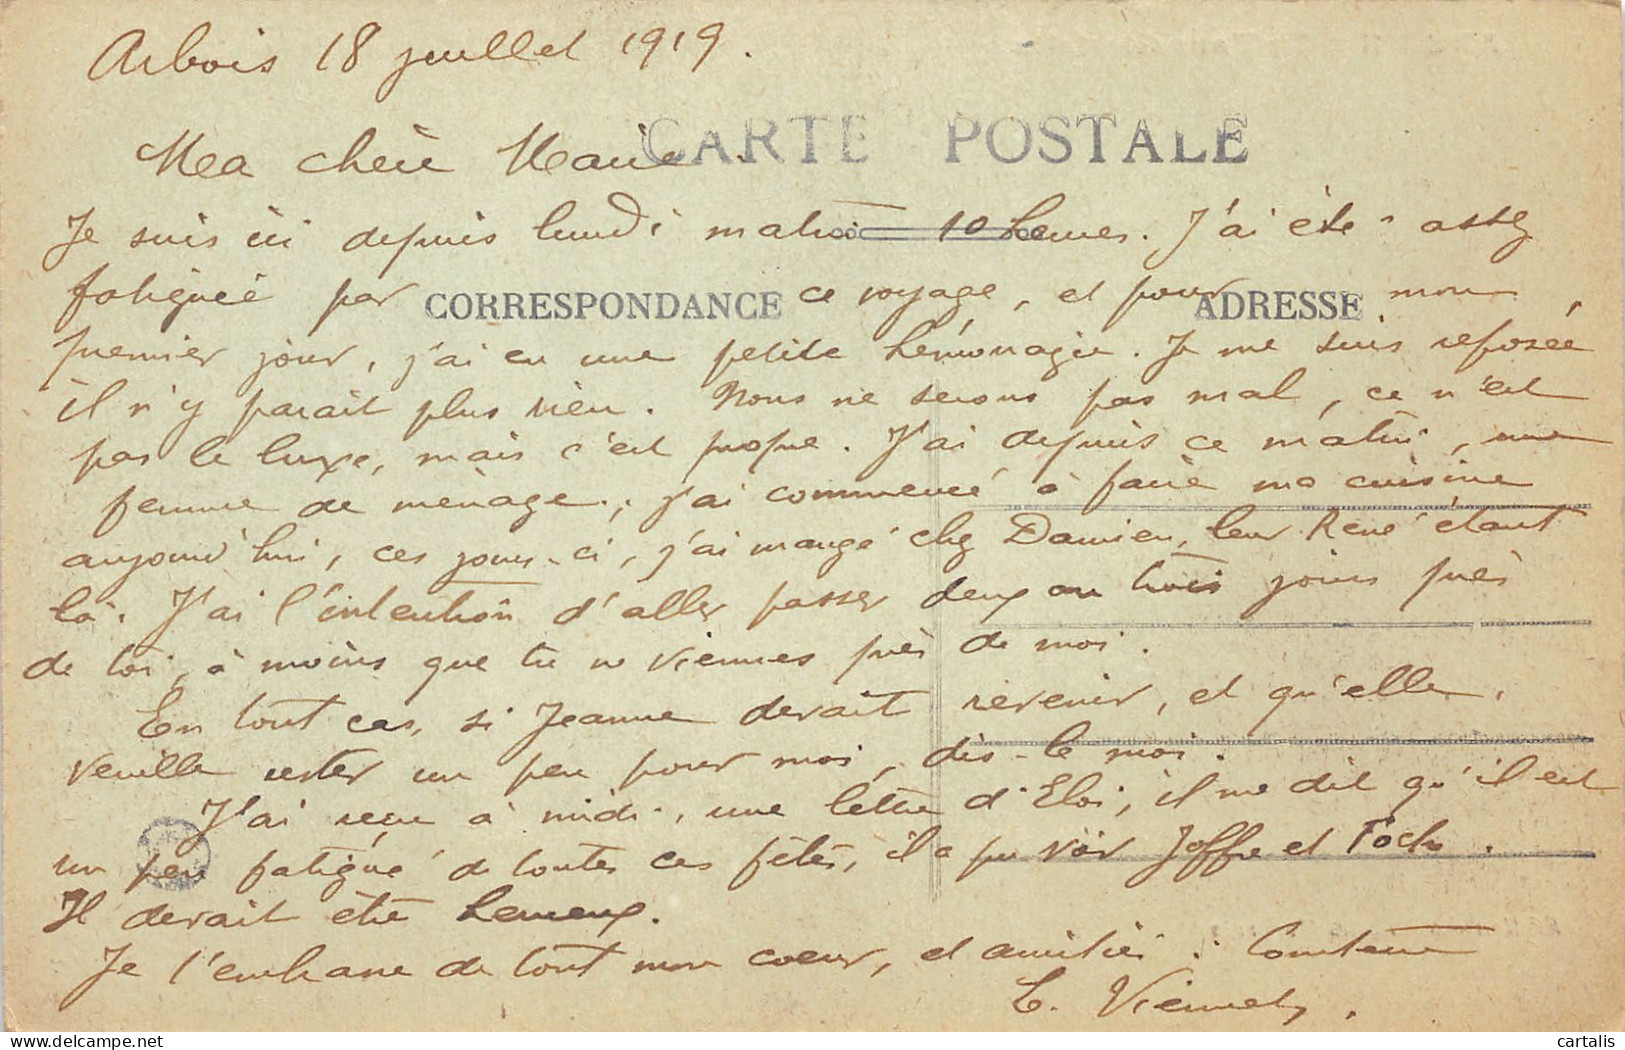 Arbois 18 juillet 1919.
CARTE POSTALE
Ma chère Marie.
Je suis ici depuis lundi matin 10 heures. J'ai été assez
CORRESPONDANCE
ADRESSE
fatiguée par ce voyage, et pour mon
premier jour, j'ai eu une petite hémorragie. Je me suis reposée
il n'y parait plus rien. Nous ne serons pas mal, ce n'est
pas le luxe, mais c'est propre. J'ai depuis ce matin, une
femme de ménage, j'ai commencé à faire ma cuisine
aujourd'hui, ces jours-ci, j'ai mangé chez Damien, leur René étant
là. J'ai l'intention d'aller passer deux ou trois jours près
de toi, à moins que tu ne viennes près de moi.
En tout cas, si Jeanne devait revenir, et qu'elle
veuille rester un peu pour moi, dis-le moi.
J'ai reçu à midi, une lettre d'Eloi, il me dit qu'il est
un peu fatigué de toutes ces fêtes, il a pu voir Joffre et Foch.
Il devait être heureux.
Je t'embrasse de tout mon coeur, et amitiés à
cartalis